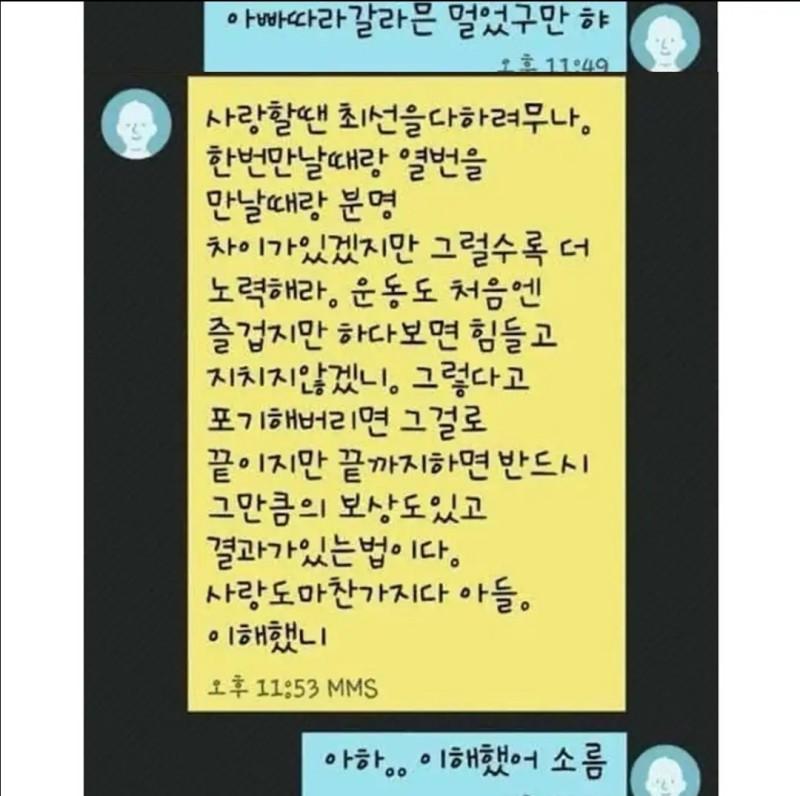 아빠따라갈라믄 멀었구만 햐
오후 11:49
사랑할땐 최선을다하려무나。
한번만날때랑 열번을
만날때랑 분명
차이가있겠지만 그럴수록 더
노력해라。운동도 처음엔
즐겁지만 하다보면 힘들고
지치지않겠니。그렇다고
포기해버리면 그걸로
끝이지만 끝까지하면 반드시
그만큼의 보상도있고
결과가있는법이다。
사랑도마찬가지다 아들。
이해했니
오후 11:53 MMS
아하。。이해했어 소름